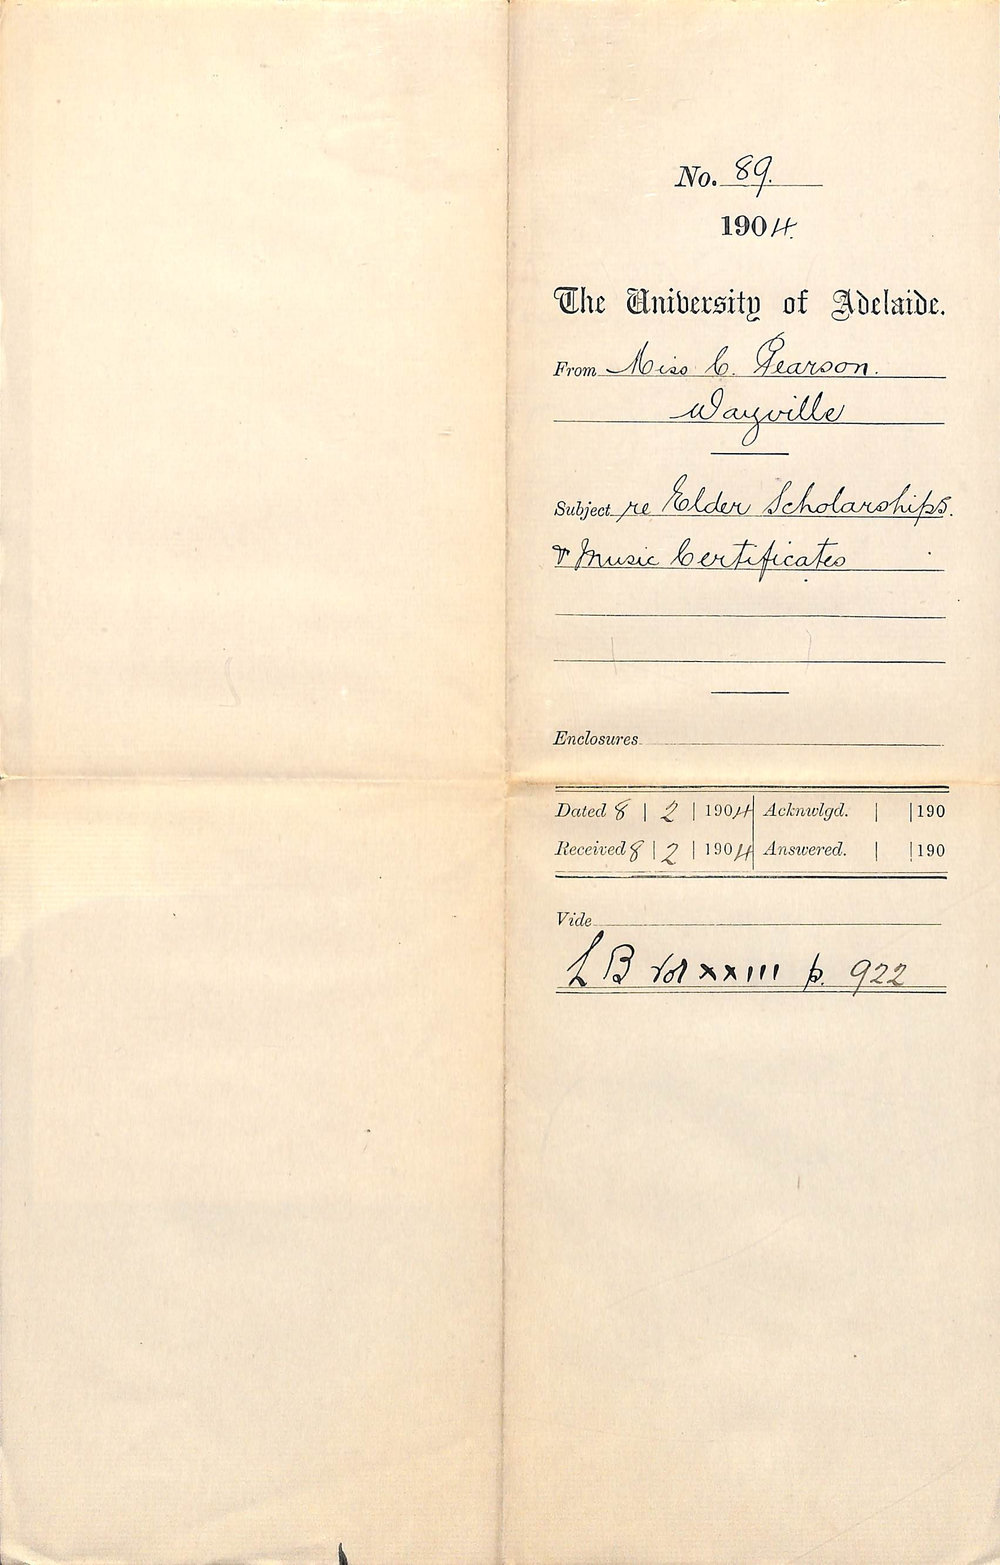 No. 89.
1904.
The University of Adelaide.
From Miss C. Pearson.
Wayville
Subject re Elder Scholarships.
& Music Certificates
Enclosures
Dated 8 | 2 | 1904 Acknwlgd. | | 190
Received 8 | 2 | 1904 Answered. | | 190
Vide
L B Vol xxiii p. 922